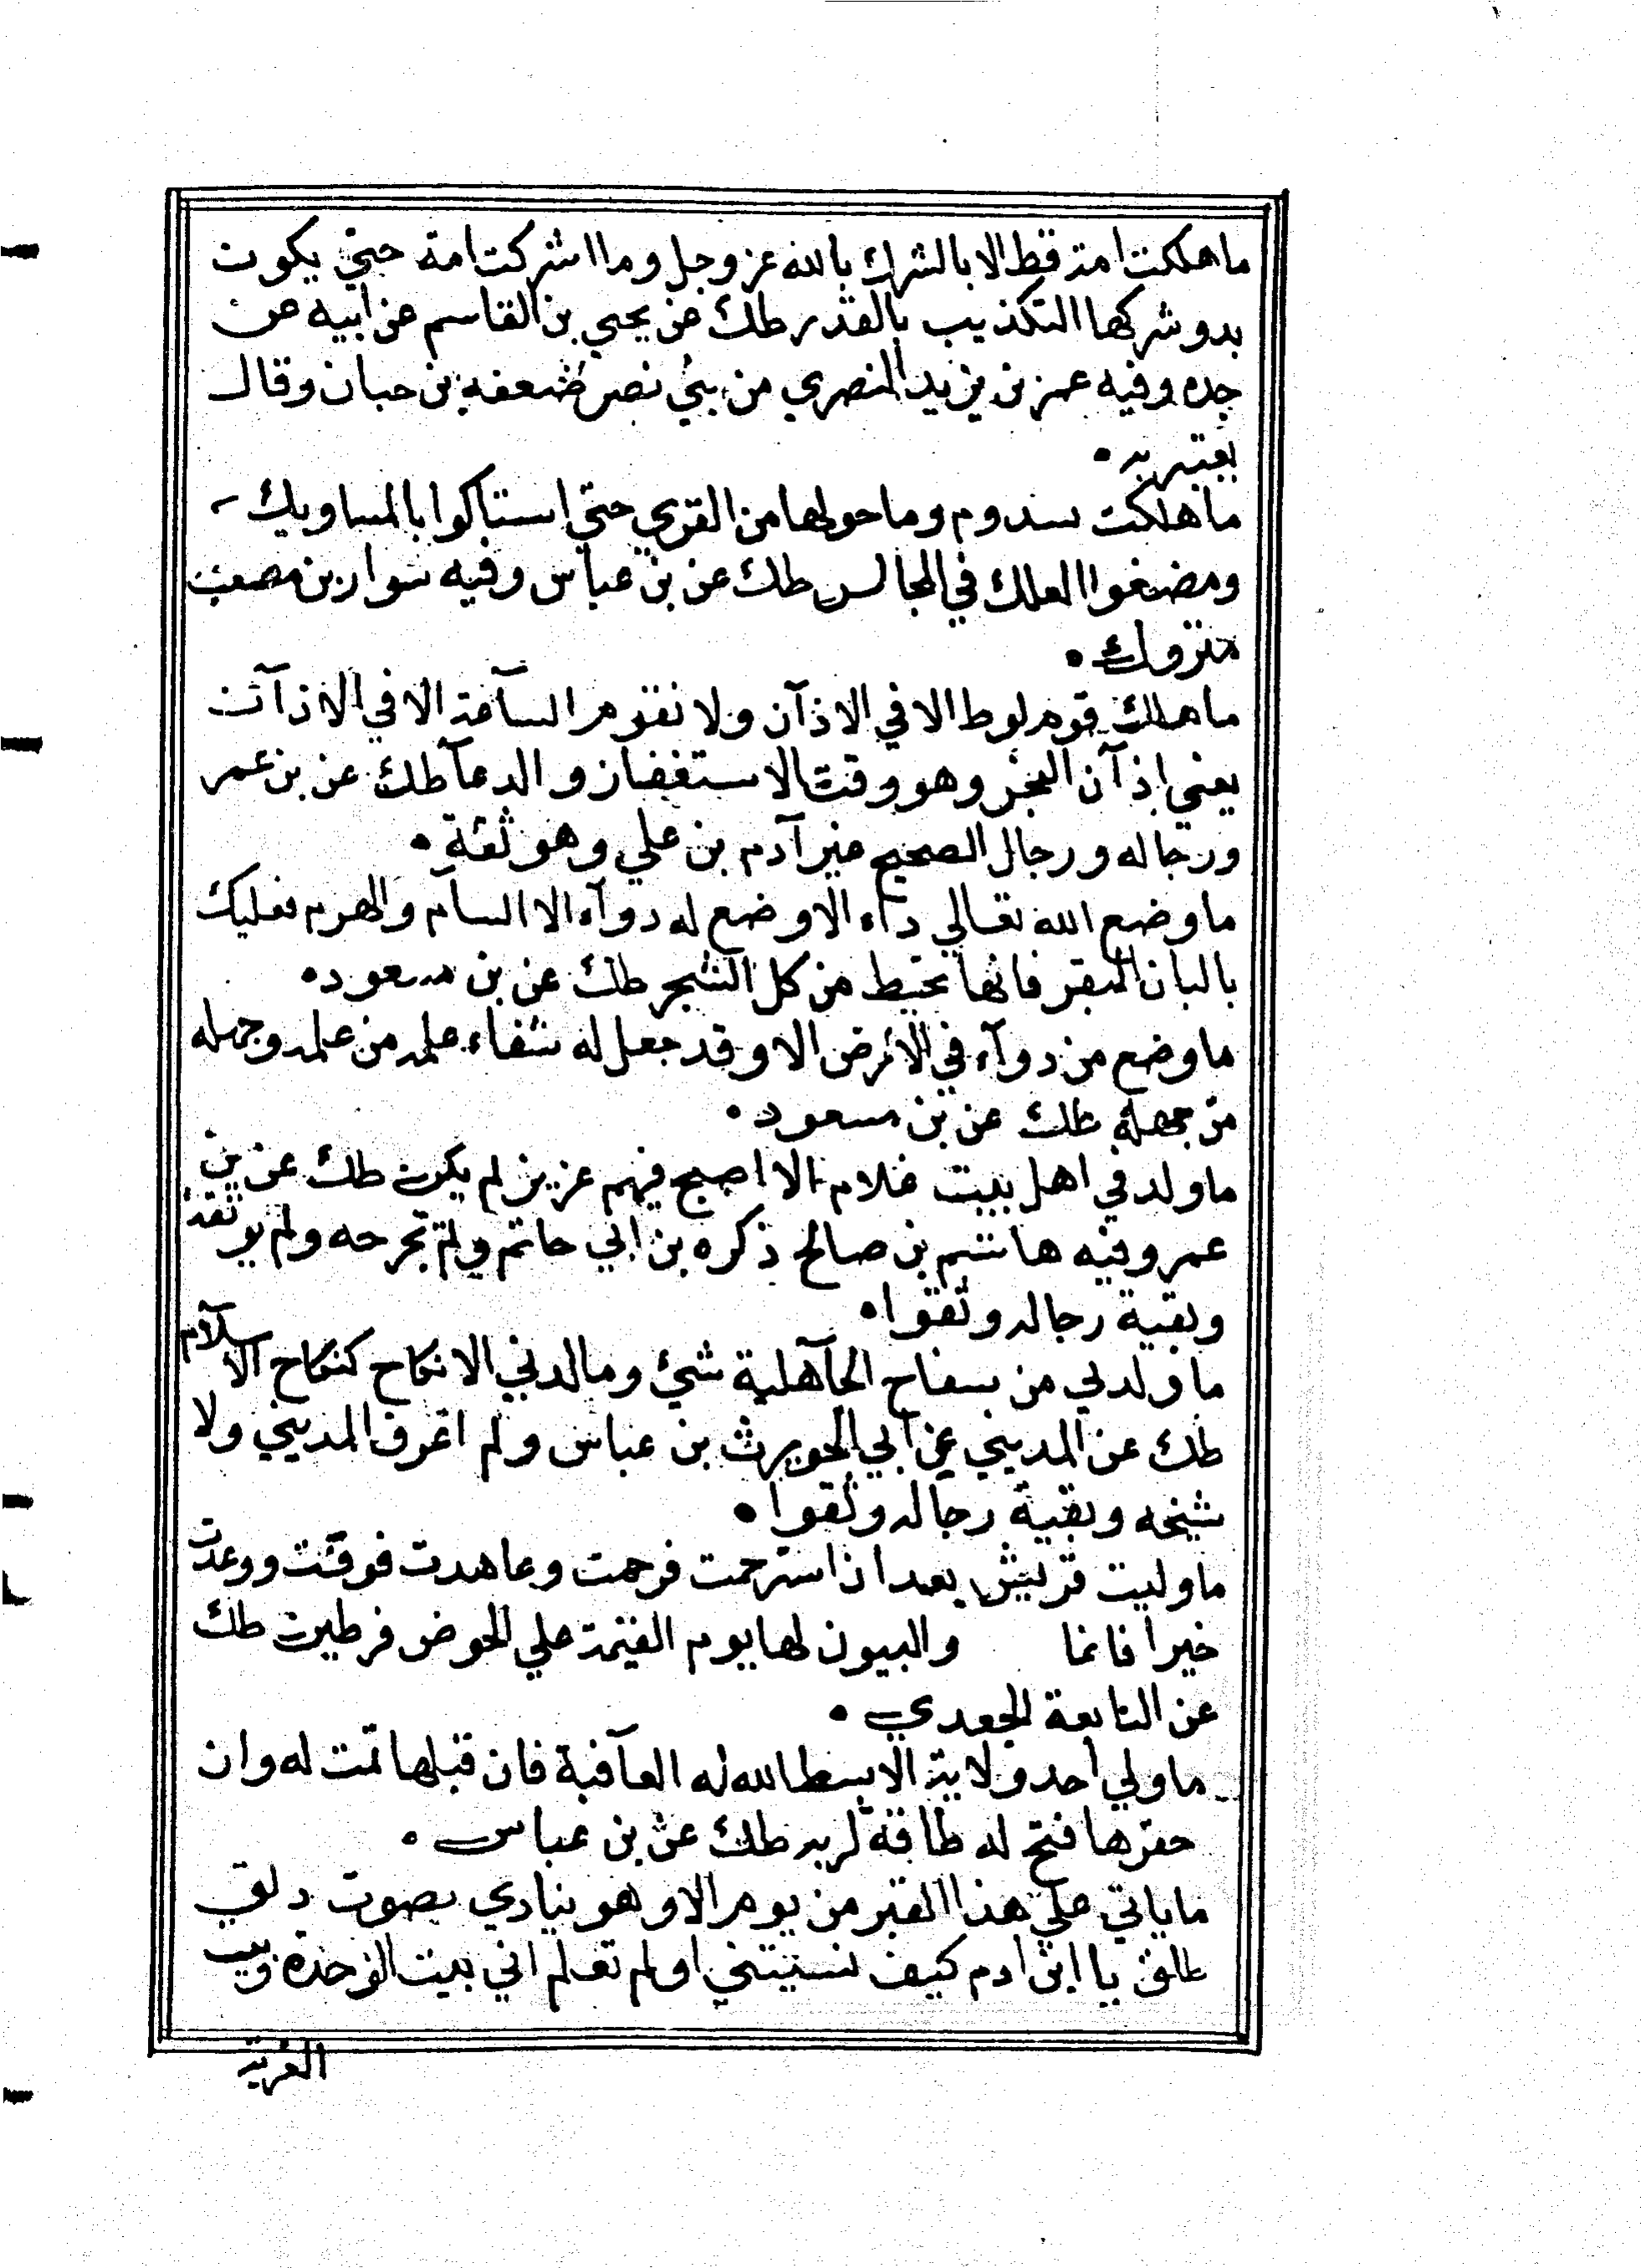 ما هلكت امة قط الا بالشرك بالله عز وجل وما اشركت امة حتي يكون
بدو شركها التكذيب بالقدر طك عن يحيي بن القاسم عن ابيه عن
جده وفيه عمر بن يزيد النصري من بني نصر ضعفه بن حبان وقال
يعتبر به •
ما هلكت سدوم وما حولها من القري حتي استاكوا بالمساويك
ومضغوا العلك في المجالس طك عن بن عباس وفيه سوار بن مصعب
متروك •
ما هلك قوم لوط الا في الاذآن ولا تقوم السآعة الا في الاذآن
يعني اذآن الفجر وهو وقت الاستغفار والدعآ طك عن بن عمر
ورجاله ورجال الصحيح غير آدم بن علي وهو ثقة •
ما وضع الله تعالي دآء الا وضع له دوآء الا السآم والهرم فعليك
بالبان البقر فانها تخبط من كل الشجر طك عن بن مسعود •
ما وضع من دوآء في الارض الا وقد جعل له شفاء علمه من علمه وجهله
من جهله طك عن بن مسعود •
ما ولد في اهل بيت غلام الا اصبح فيهم عز يز لم يكن طك عن بن
عمر وفيه هاشم بن صالح ذكره بن ابي حاتم ولم يجرحه ولم يوثقه
وبقية رجاله وثقوا •
ما ولدني من سفاح الجآهلية شئ وما لدني الا نكاح كنكاح الاسلآم
طك عن المديني عن ابي الحويرث بن عباس ولم اعرف المديني ولا
شيخه وبقية رجاله وثقوا •
ما وليت قريش بعد اذا استرحمت فرحمت وعاهدت فوفت ووعدت
خيرا فانما والبيون لها يوم القيمة علي الحوض فرطين طك
عن النابعة الجعدي •
ما ولي احد ولاية الا بسط الله له العآفية فان قبلها تمت له وان
حقرها فتح له طاقة لربه طك عن بن عباس •
ما ياتي علي هذا القبر من يوم الا وهو ينادي بصوت دلق
طلق يا ابن ادم كيف نسيتني اولم تعلم اني بيت الوحدة وبيت
الغربة